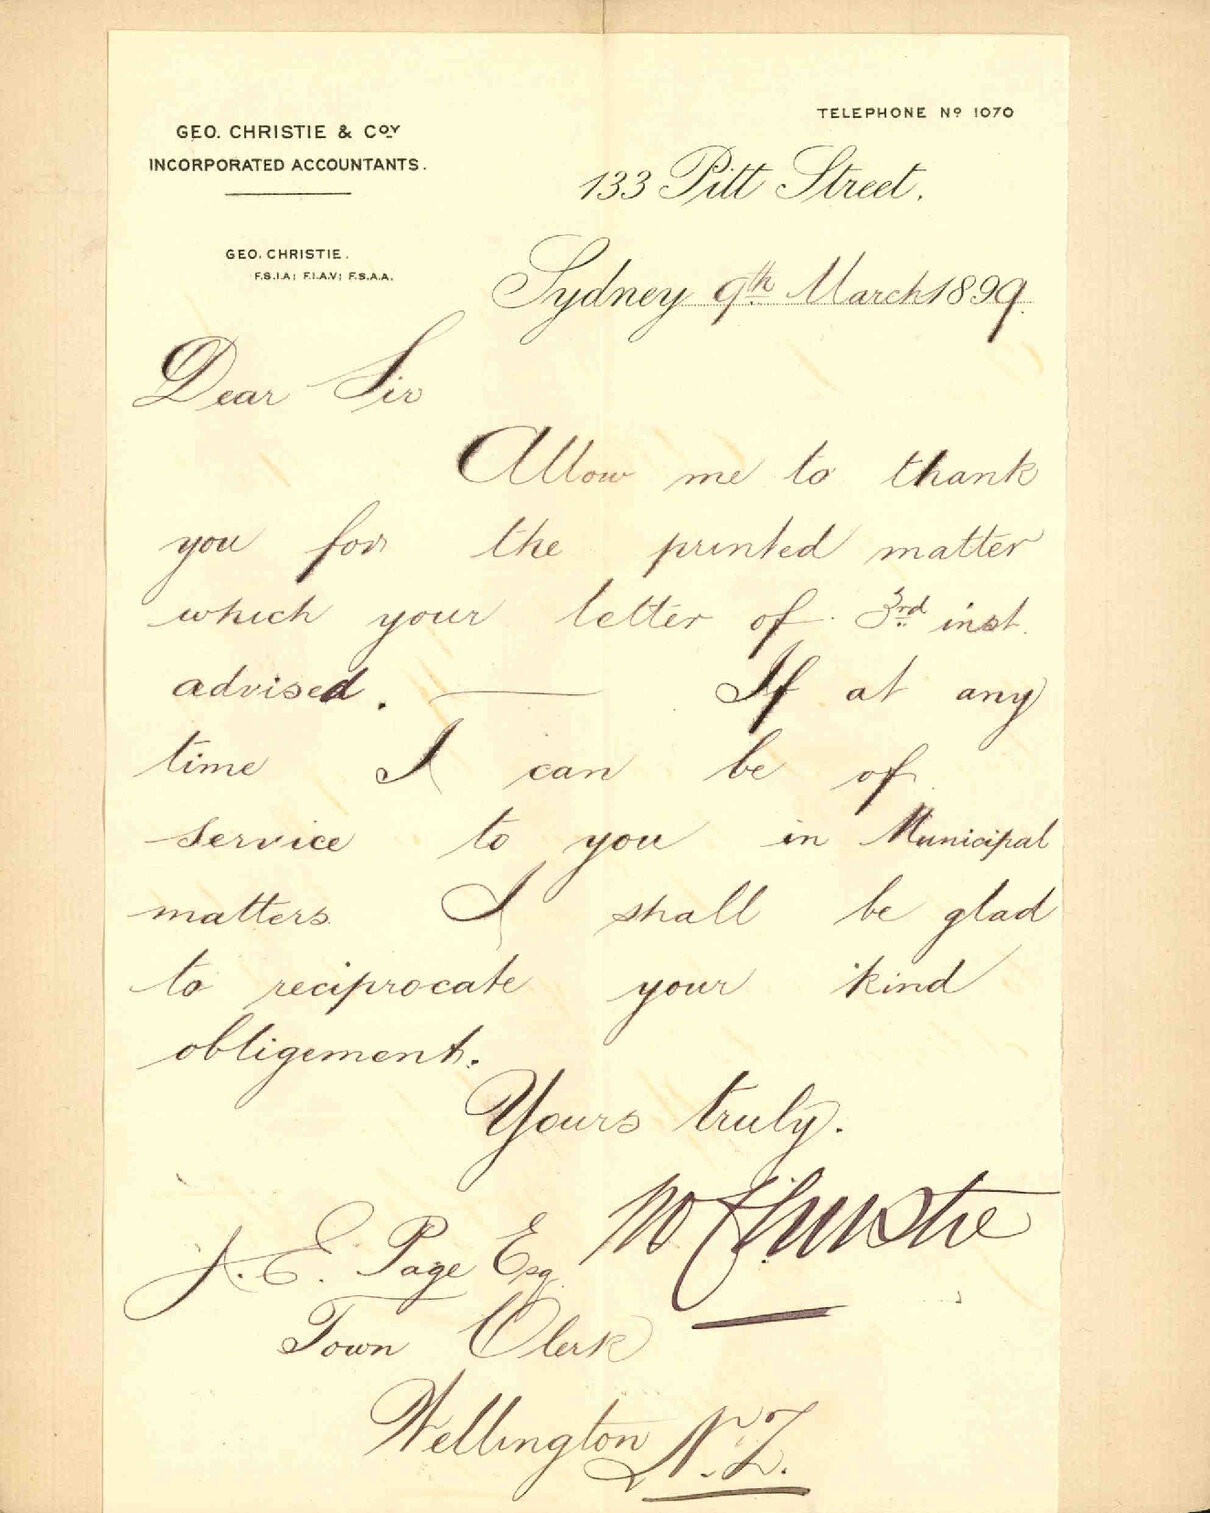 GEO. CHRISTIE & COY
INCORPORATED ACCOUNTANTS.
TELEPHONE Nº 1070
133 Pitt Street.
GEO. CHRISTIE.
F.S.I.A; F.I.A.V; F.S.A.A.
Sydney 9th March 1899.
Dear Sir
Allow me to thank
you for the printed matter
which your letter of 3rd inst.
advised. — If at any
time I can be of
service to you in Municipal
matters I shall be glad
to reciprocate your kind
obligement.
Yours truly.
Christie
J. E. Page Esq.
Town Clerk
Wellington N.Z.